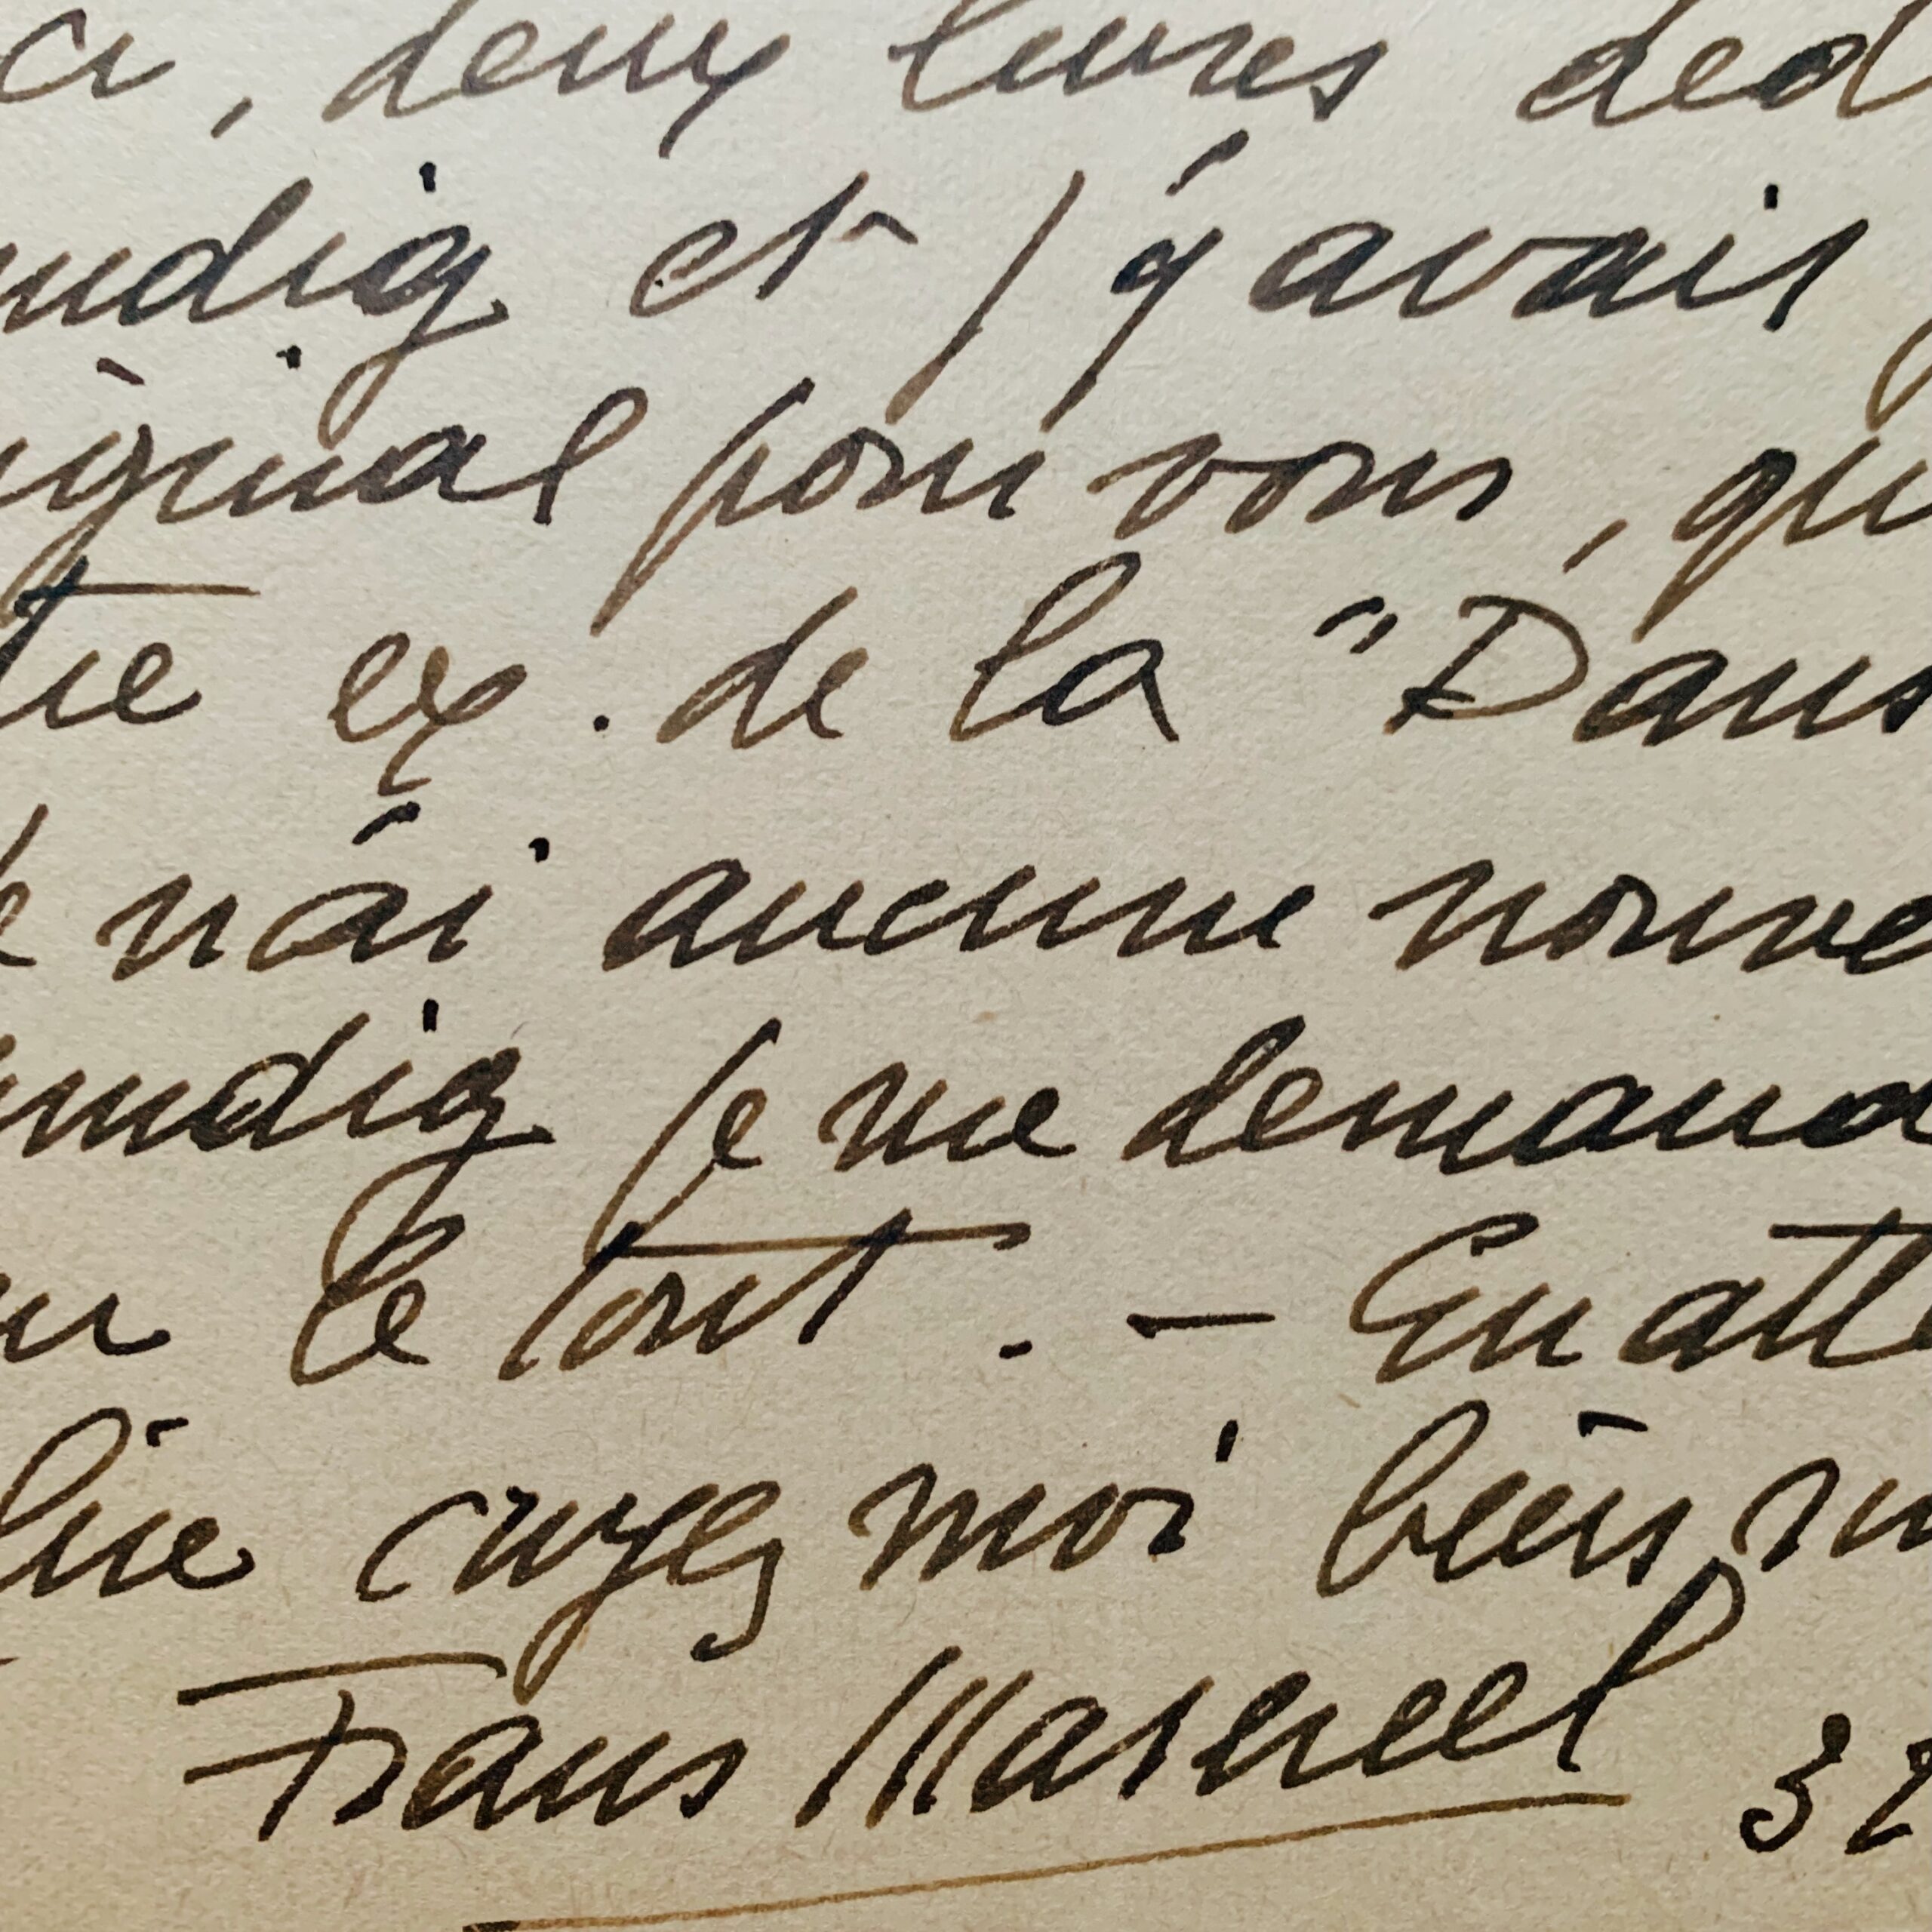 ci, deux livres déd
undig et j'y avais
iginal pour vous, qu
tre ex. de la "Dans
e n'ai aucune nouve
undig je me demand
le tout. - En atte
lire croyez moi bien
Frans Masereel 32